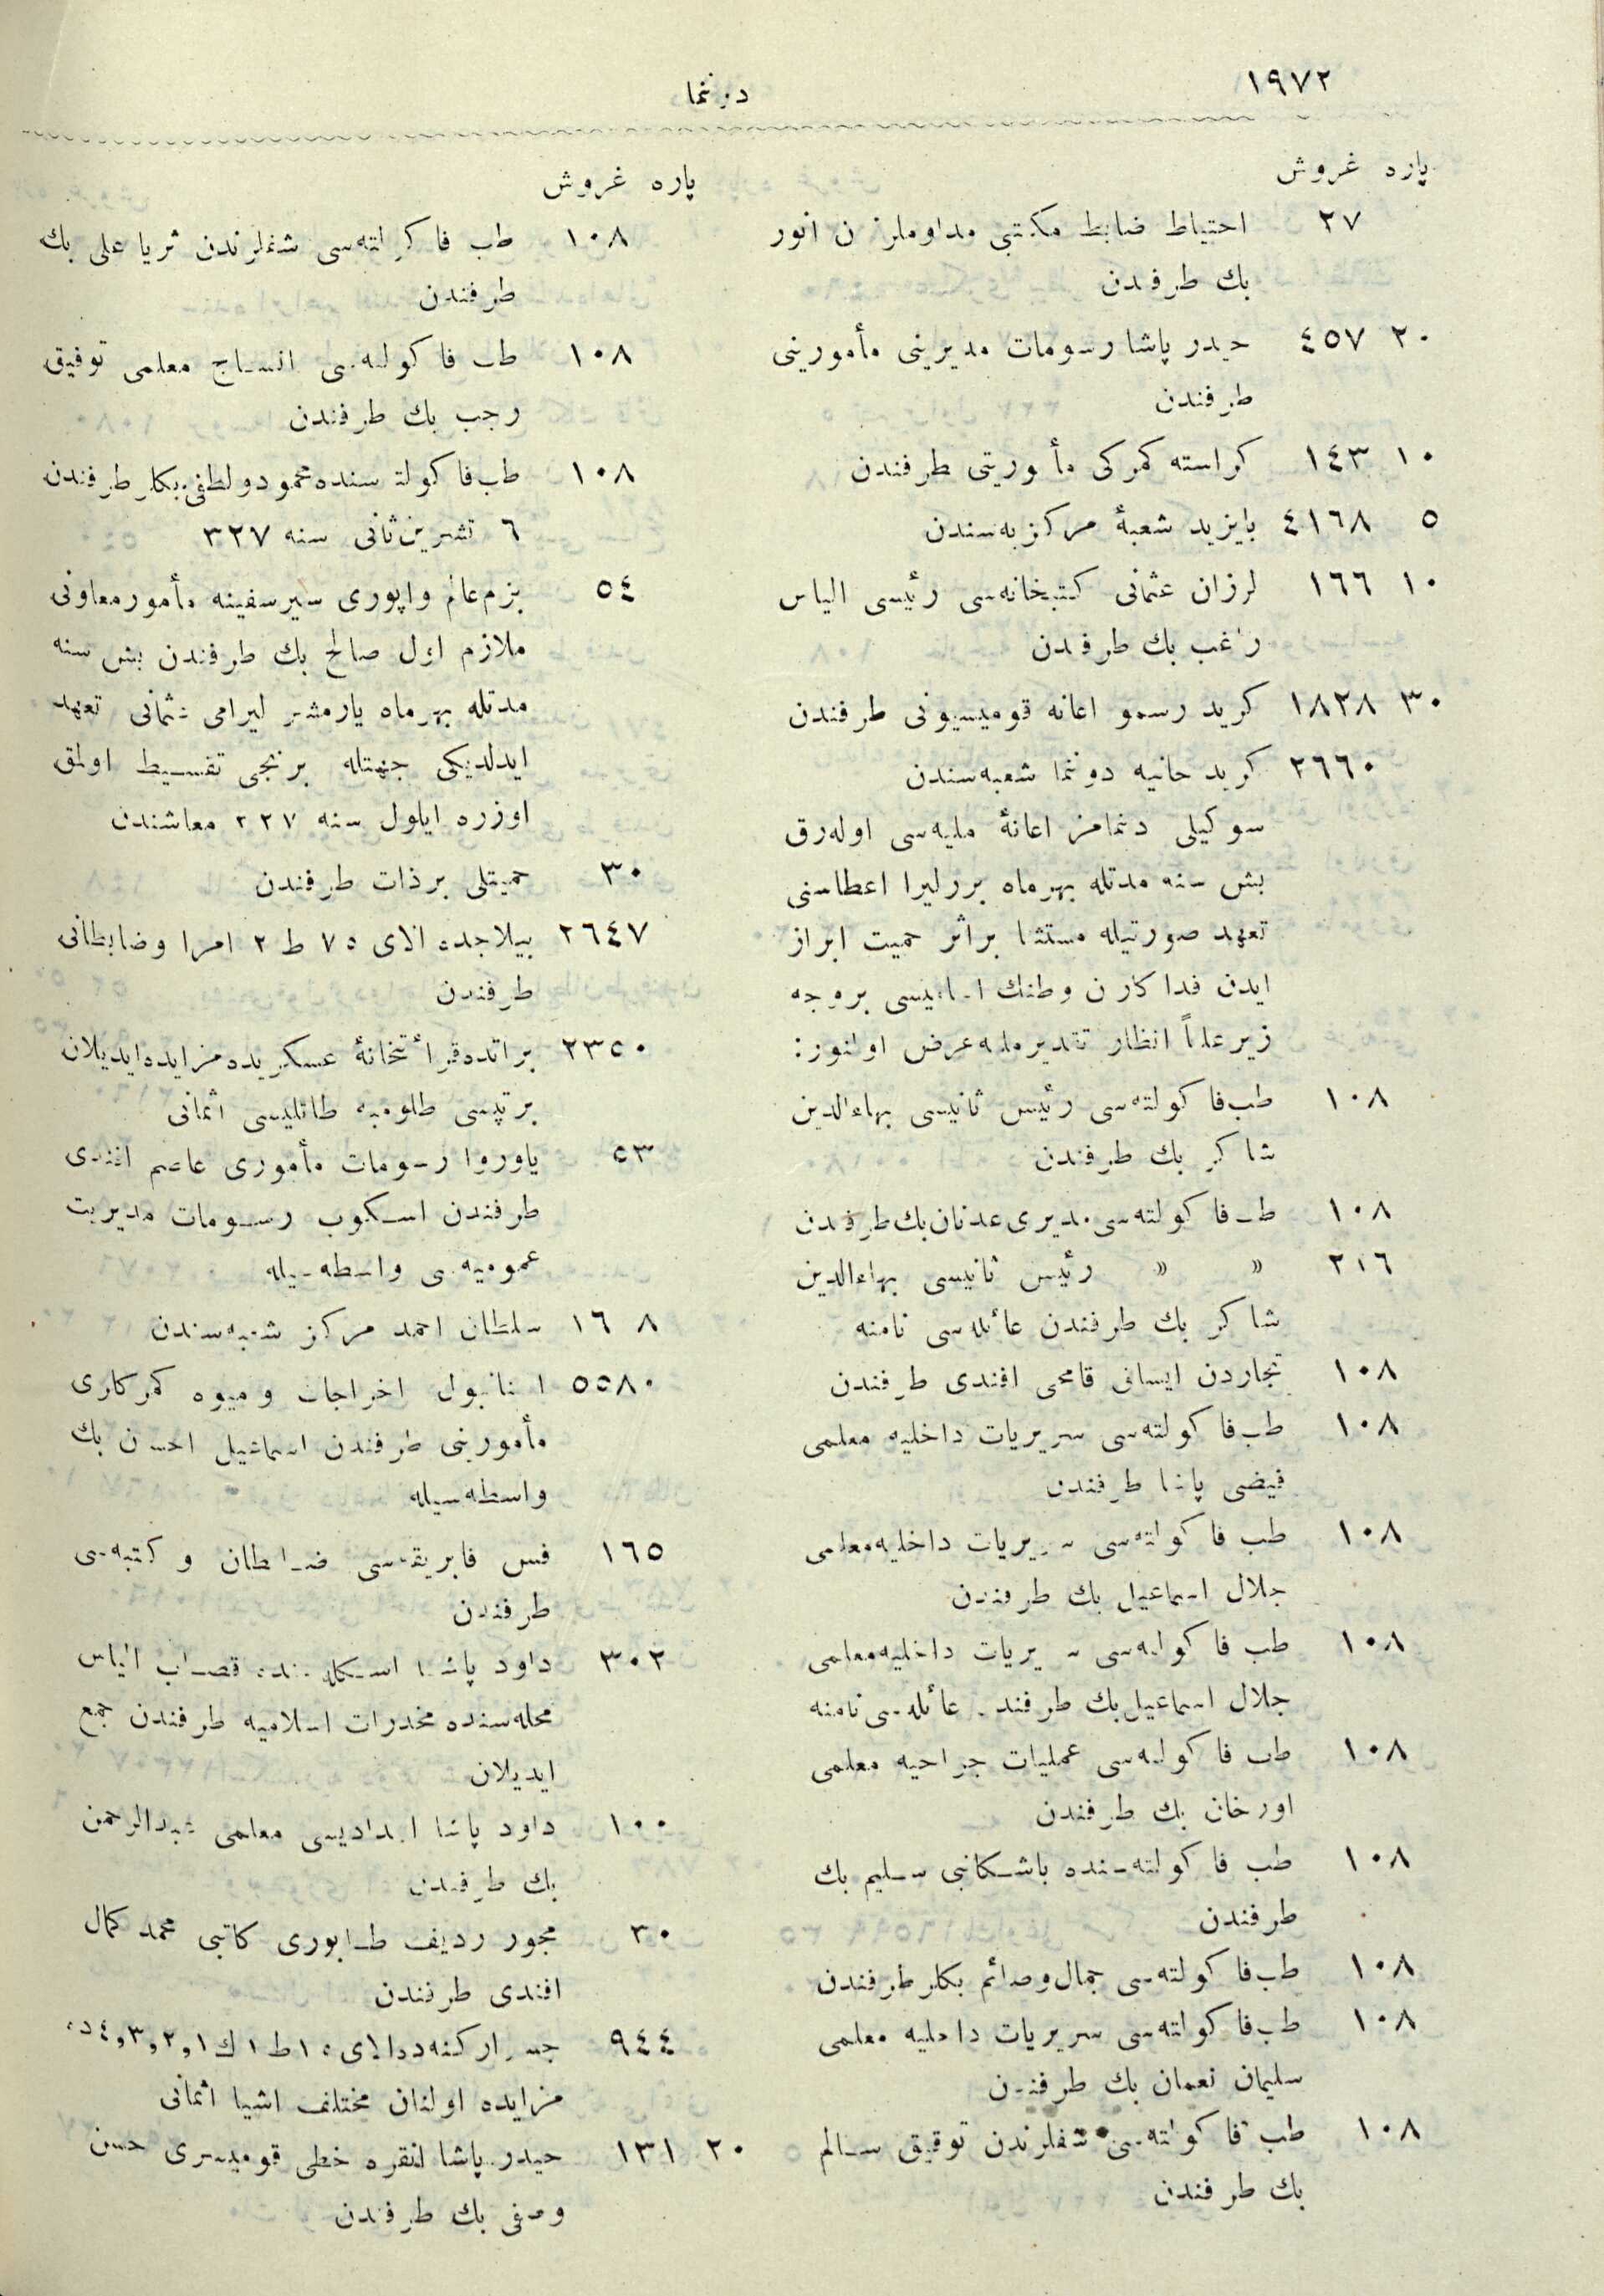 ١٩٧٢
دوننما
پاره غروش
٢٧ احتیاط ضابط مکتبی مداوملرندن انور
بك طرفندن
٢٠ ٤٥٧ حیدر پاشا رسومات مدیرینی مأمورینی
طرفندن
١٠ ١٤٣ کراسته کمرکی مأموریتی طرفندن
٥ ٤١٦٨ بایزید شعبهٔ مرکزیه‌سندن
١٠ ١٦٦ لرزان عثمانی کتبخانه‌سی رئیسی الیاس
راغب بك طرفندن
٣٠ ١٨٢٨ کرید رسمو اعانه قومیسیونی طرفندن
٢٦٦٠ کرید حانیه دوننما شعبه‌سندن
سوکیلی دننمامز اعانهٔ ملیه‌سی اوله‌رق
بش سنه مدتله بهرماه بررلیرا اعطاسنی
تعهد صورتیله مستثنا براثر حمیت ابراز
ایدن فداکاران وطنك اسامیسی بروجه
زیر علناً انظار تقدیر ملیه عرض اولنور:
١٠٨ طب فاکولته‌سی رئیس ثانیسی بهاءالدین
شاکر بك طرفندن
١٠٨ طب فاکولته‌سی مدیری عدنان بك طرفندن
٢١٦ » » رئیس ثانیسی بهاءالدین
شاکر بك طرفندن عائله‌سی نامنه
١٠٨ تجاردن ایسانی قامحی افندی طرفندن
١٠٨ طب فاکولته‌سی سریریات داخلیه معلمی
فیضی پاشا طرفندن
١٠٨ طب فاکولته‌سی سریریات داخلیه معلمی
جلال اسماعیل بك طرفندن
١٠٨ طب فاکولته‌سی سریریات داخلیه معلمی
جلال اسماعیل بك طرفندن عائله‌سی نامنه
١٠٨ طب فاکولته‌سی عملیات جراحیه معلمی
اورخان بك طرفندن
١٠٨ طب فاکولته‌سنده باشکاتبی سلیم بك
طرفندن
١٠٨ طب فاکولته‌سی جمال وصائم بکلر طرفندن
١٠٨ طب فاکولته‌سی سریریات داخلیه معلمی
سلیمان نعمان بك طرفندن
١٠٨ طب فاکولته‌سی شفلرندن توفیق سالم
بك طرفندن
پاره غروش
١٠٨ طب فاکولته‌سی شفلرندن ثریا علی بك
طرفندن
١٠٨ طب فاکولته‌سی انساج معلمی توفیق
رجب بك طرفندن
١٠٨ طب فاکولته‌سنده محمود ولطفی بکلر طرفندن
٦ تشرین ثانی سنه ٣٢٧
٥٤ بزم عالم واپوری سیرسفینه مأمور معاونی
ملازم اول صالح بك طرفندن بش سنه
مدتله بهرماه یارمشر لیرای عثمانی تعهد
ایدلدیکی جهتله برنجی تقسیط اولمق
اوزره ایلول سنه ٣٢٧ معاشندن
٣٠ حمیتلی برذات طرفندن
٢٦٤٧ بیلاجده الای ٧٥ ط ٢ امرا وضابطانی
طرفندن
٢٣٥٠ براتده قرأتخانهٔ عسکریده مزایده ایدیلان
برتپسی طلومبه طاتلیسی اثمانی
٥٣ یاوروا رسومات مأموری عاصم افندی
طرفندن اسکوب رسومات مدیریت
عمومیه‌سی واسطه‌سیله
١٦ ٨ سلطان احمد مرکز شعبه‌سندن
٥٥٨٠ استانبول اخراجات ومیوه کمرکلری
مأمورینی طرفندن اسماعیل احسن بك
واسطه‌سیله
١٦٥ فس فابریقه‌سی ضابطان وکتبه‌سی
طرفندن
٣٠٢ داود پاشا اسکله‌سنده قصاب الیاس
محله‌سنده مخدرات اسلامیه طرفندن جمع
ایدیلان
١٠٠ داود پاشا اعدادیسی معلمی عبدالرحمن
بك طرفندن
٣٠ مجور ردیف طابوری کاتبی محمد کمال
افندی طرفندن
٩٤٤ جسر ارکنه‌ده الای ١٠ ط ١ ك ١,٢,٣,٤ده
مزایده اولنان مختلف اشیا اثمانی
٢٠ ١٣١ حیدرپاشا انقره خطی قومیسری حسن
وصفی بك طرفندن